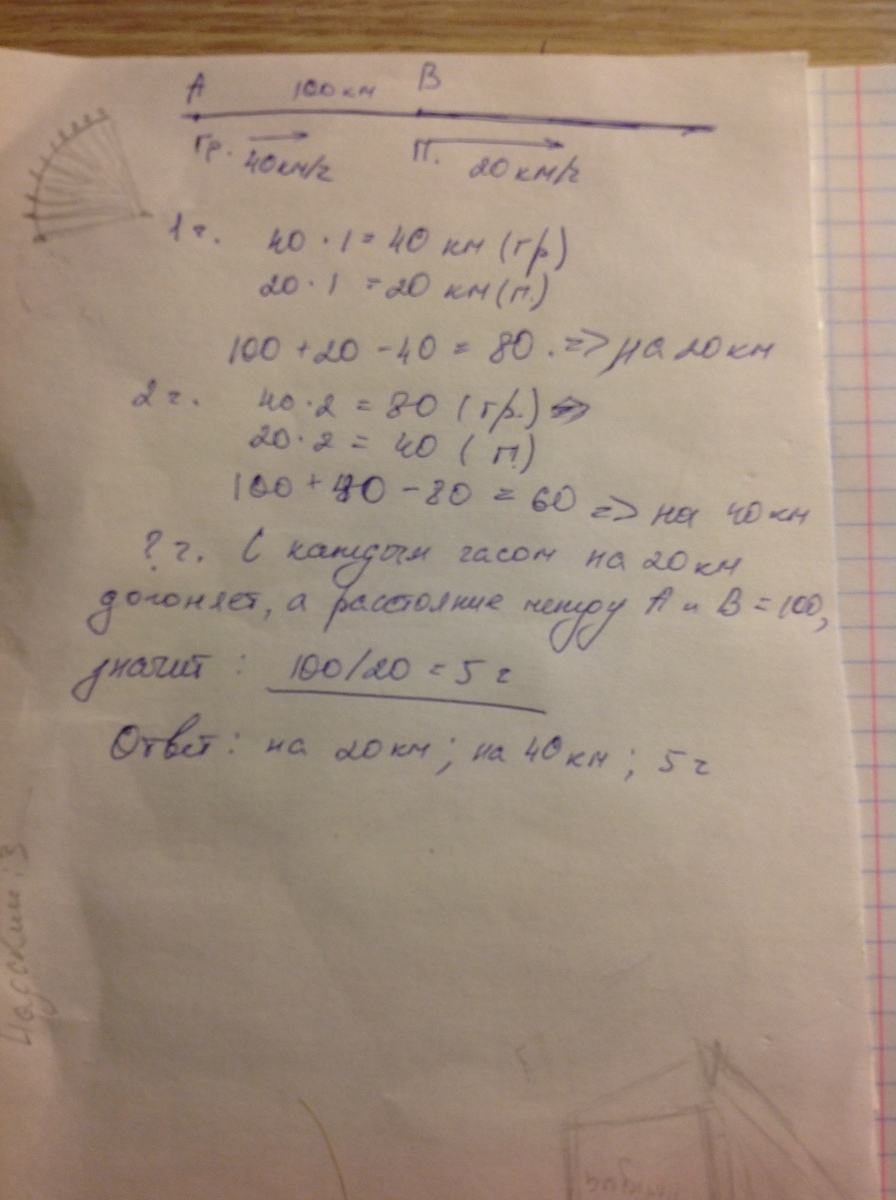 А 100 км В
Гр. 40км/ч П. 20 км/ч
1 ч. 40 · 1 = 40 км (гр.)
20 · 1 = 20 км (п.)
100 + 20 - 40 = 80. => на 20 км
2 ч. 40 · 2 = 80 (гр.) =>
20 · 2 = 40 (п.)
100 + 40 - 80 = 60 => на 40 км
? ч. С каждым часом на 20 км
догоняет, а расстояние между А и В = 100,
значит : 100/20 = 5 ч
Ответ : на 20 км ; на 40 км ; 5 ч